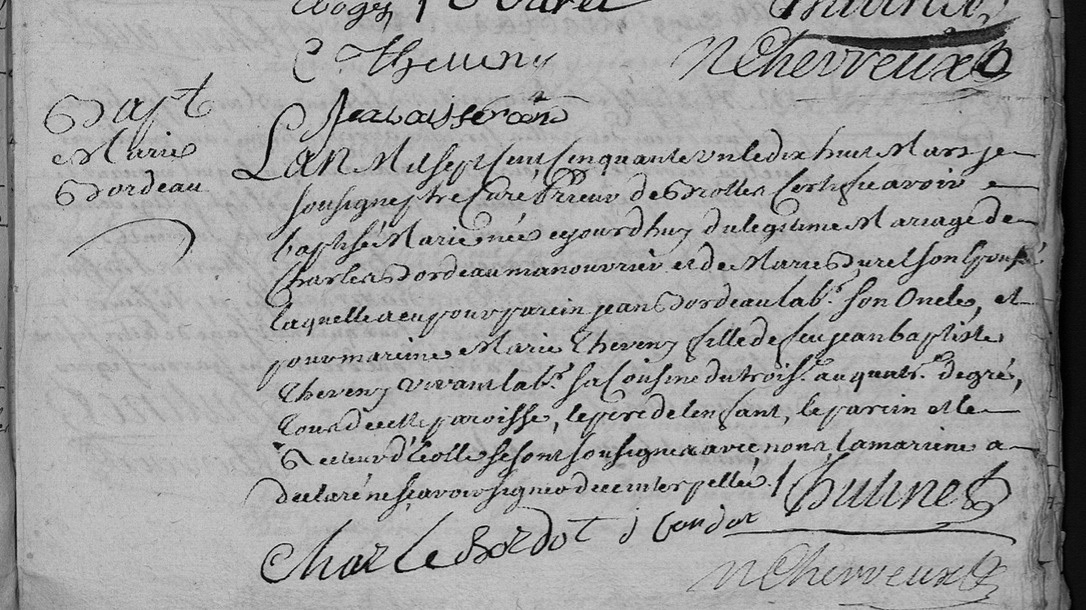 C Theveny
N Chevreux
Jean aisserand
Bapt
Marie
Bordeau
L'an Mil sept cent cinquante un le dix huit Mars je
soussigné ptre Curé Prieur de certifie avoir
baptisé Marie née cejourdhuy du legitime Mariage de
Charles Bordeau manouvrier et de Marie Burel son Epouse
laquelle a eu pour parein jean Bordeau labr. son Oncle, et
pour mareine Marie Theveny fille de feu jean baptiste
Theveny vivant labr. sa Cousine du trois. au quatr. degré,
tous de cette paroisse, le père de lenfant, le parein et le
Recteur d'école se sont soussignez avec nous, la mareine a
declaré ne scavoir signer de ce interpellée.
Charle Bordot j bordot Thuline
N Chevreux